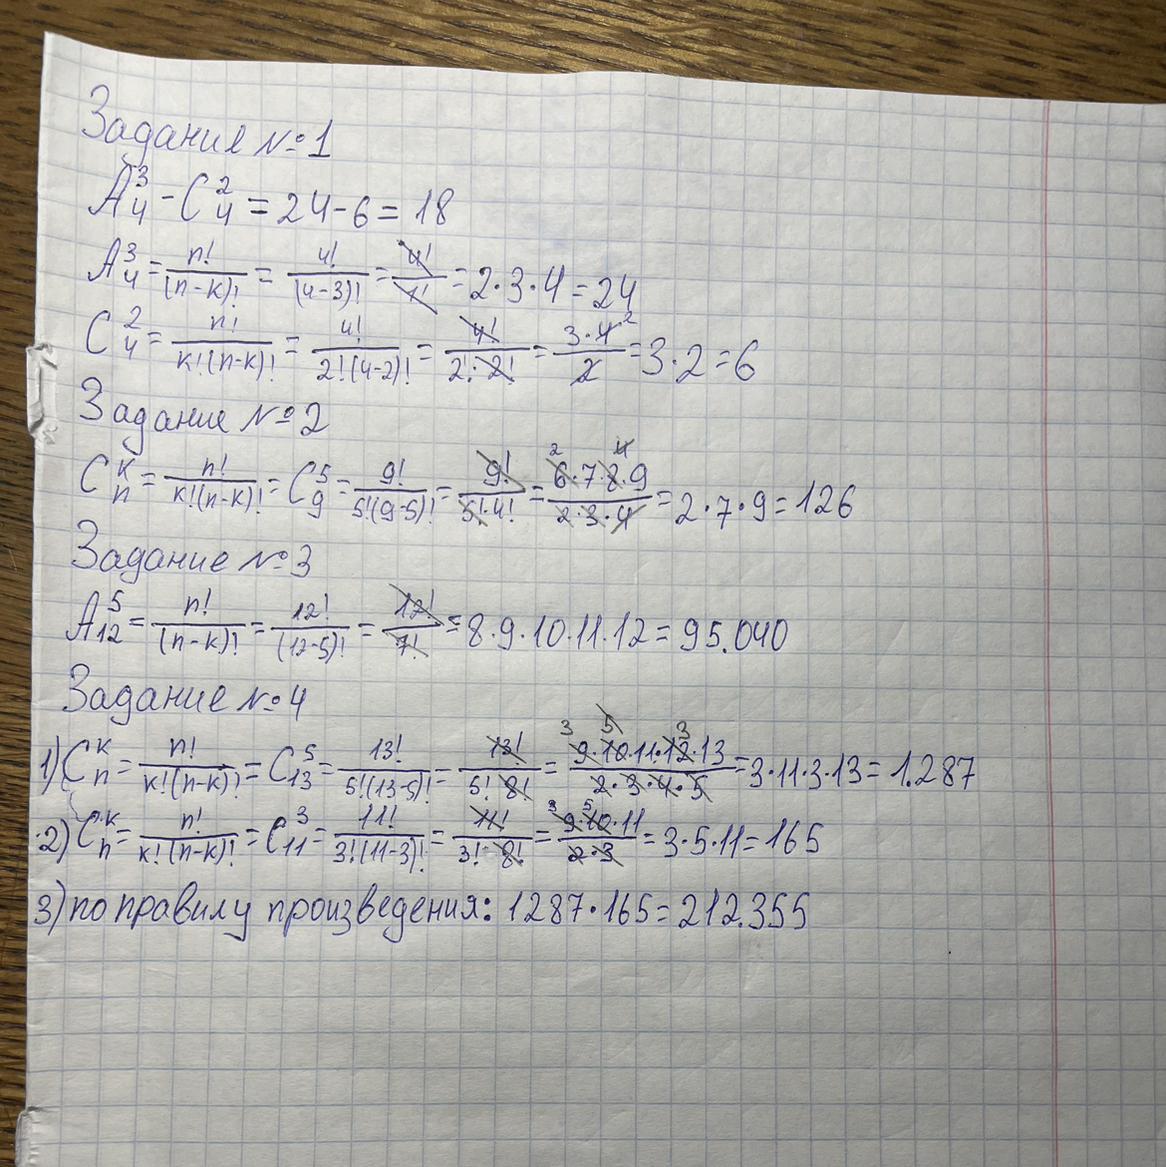 Задание №1
A₄³ - C₄² = 24 - 6 = 18
A₄³ = n!/(n-k)! = 4!/(4-3)! = 4!/1! = 2·3·4 = 24
C₄² = n!/k!(n-k)! = 4!/2!(4-2)! = 4!/2!·2! = 3·4²/2 = 3·2 = 6
Задание №2
Cₙᵏ = n!/k!(n-k)! = C₉⁵ = 9!/5!(9-5)! = 9!/5!·4! = 6·7·8·9/2·3·4 = 2·7·9 = 126
Задание №3
A₁₂⁵ = n!/(n-k)! = 12!/(12-5)! = 12!/7! = 8·9·10·11·12 = 95.040
Задание №4
1) Cₙᵏ = n!/k!(n-k)! = C₁₃⁵ = 13!/5!(13-5)! = 13!/5!8! = 9·10·11·12·13/2·3·4·5 = 3·11·3·13 = 1.287
2) Cₙᵏ = n!/k!(n-k)! = C₁₁³ = 11!/3!(11-3)! = 11!/3!·8! = 9·10·11/2·3 = 3·5·11 = 165
3) по правилу произведения: 1287·165 = 212.355